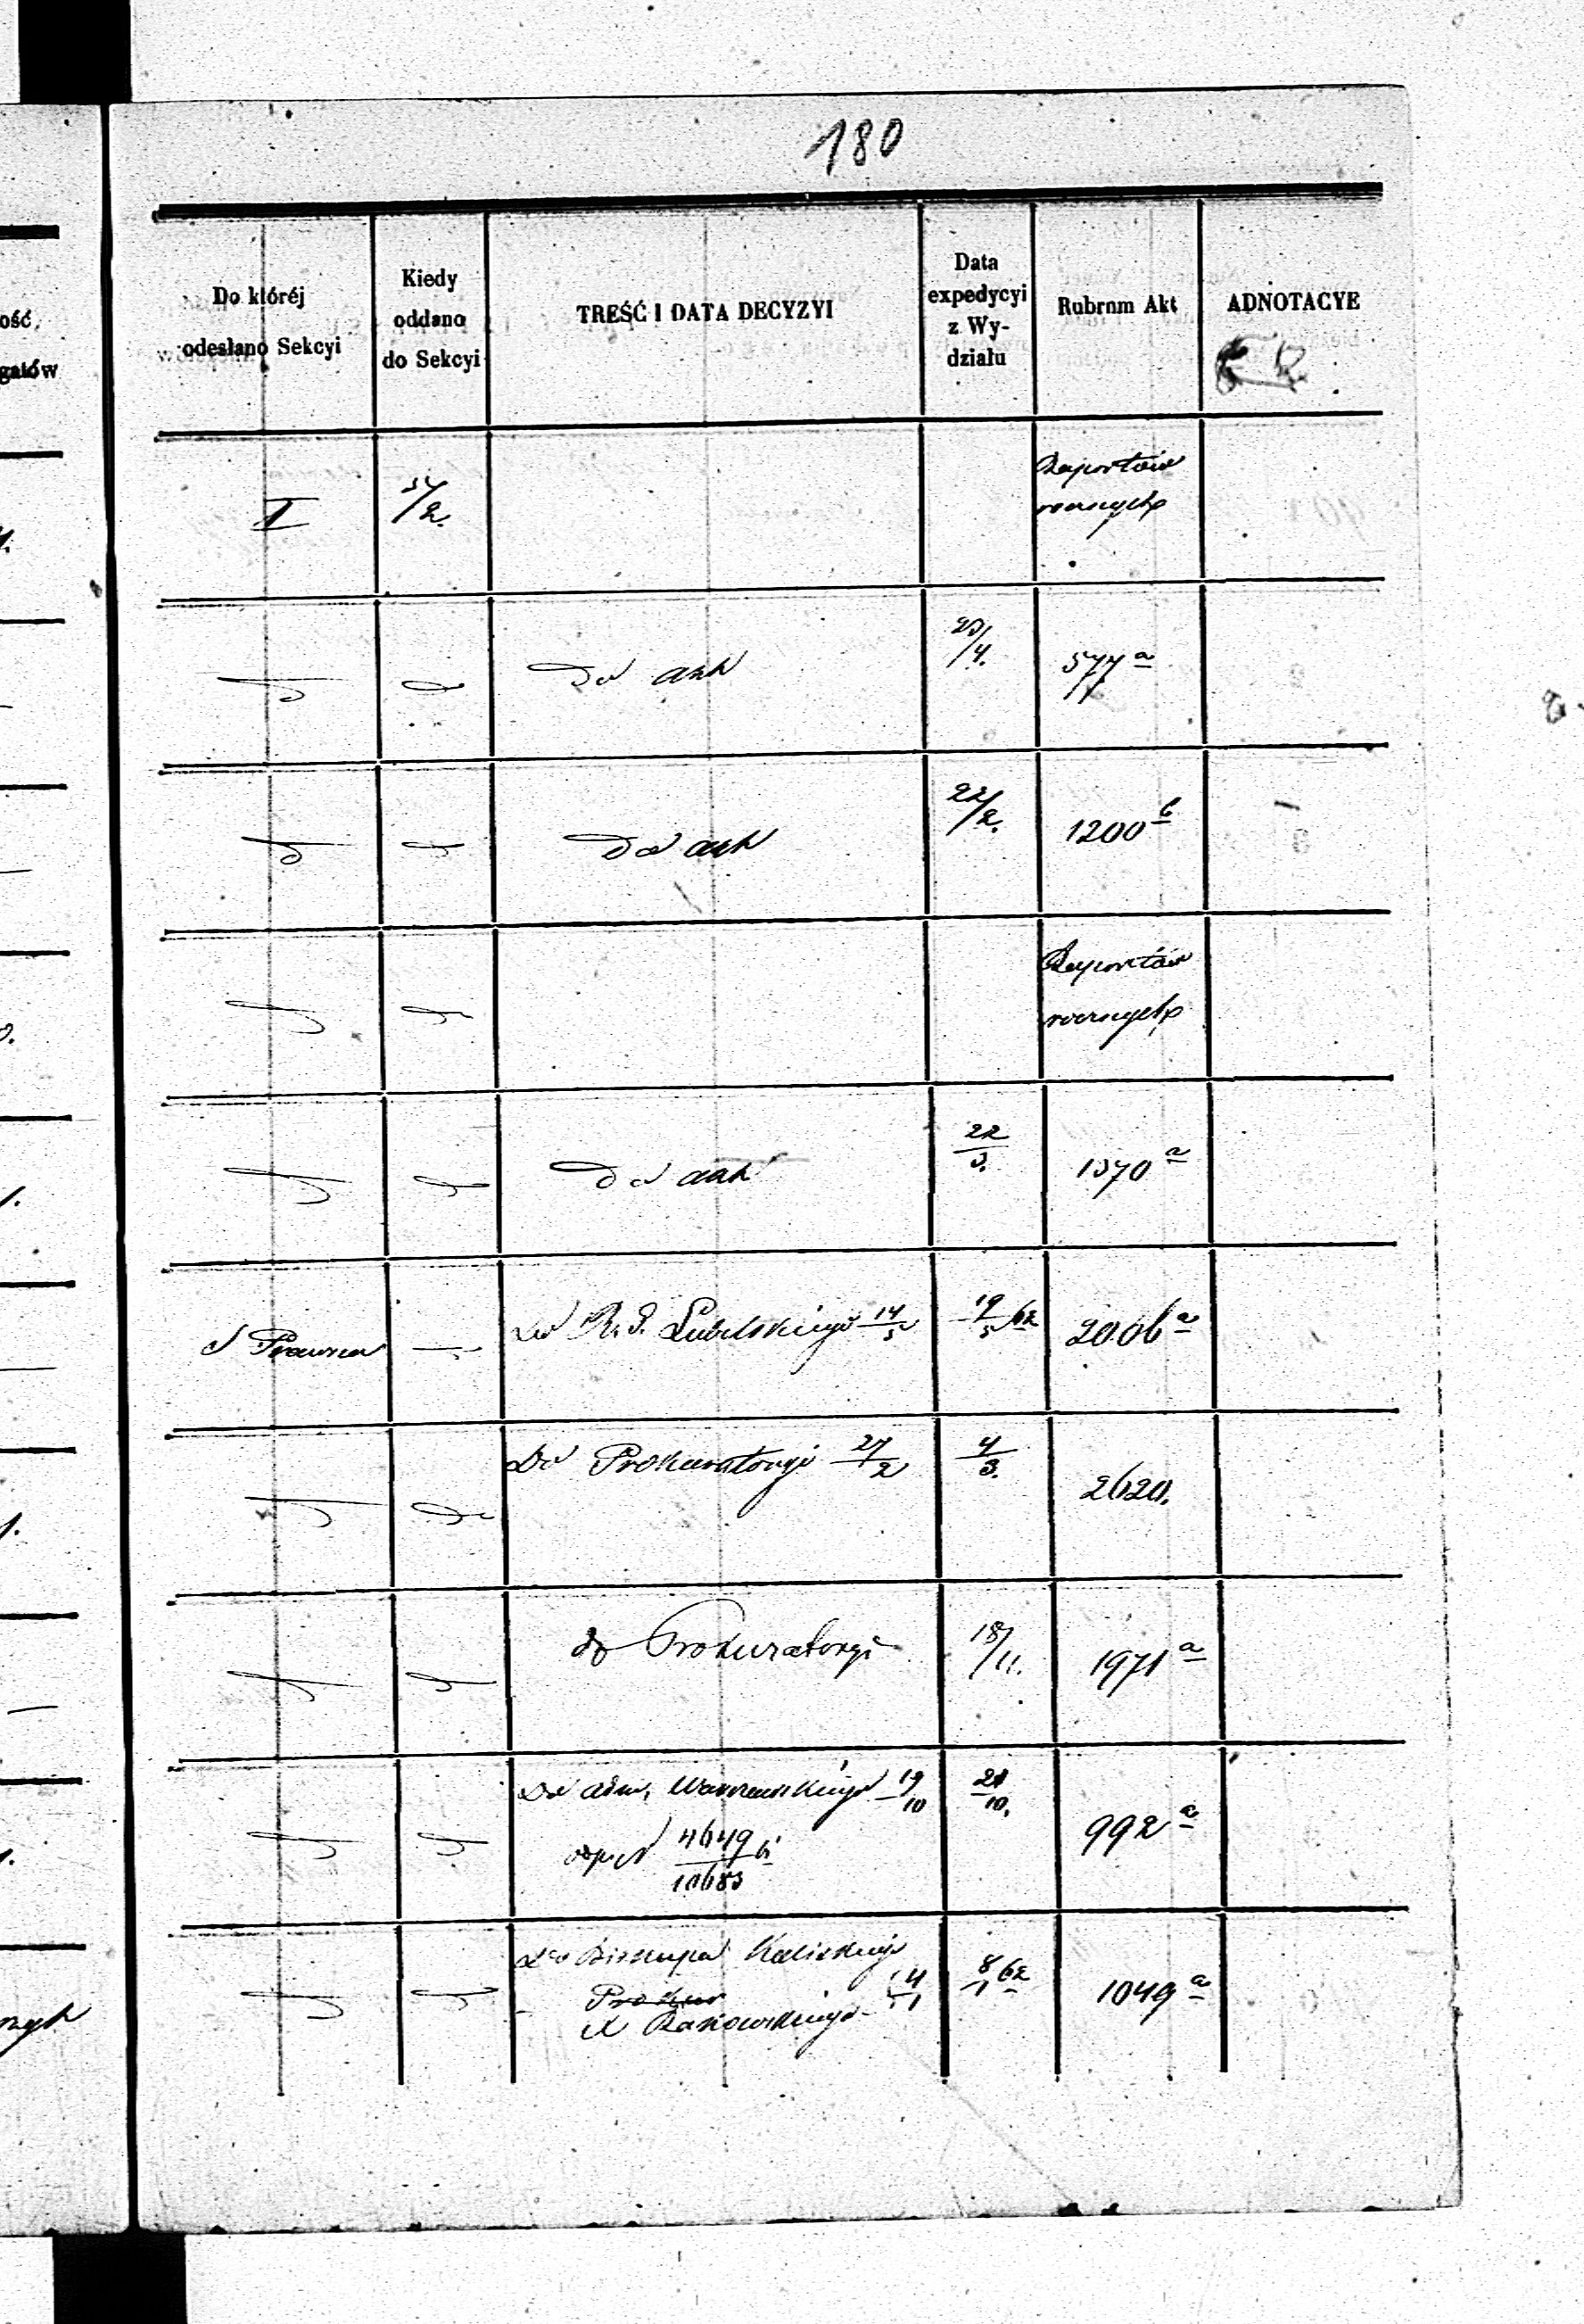 180
ość
gatów
Do któréj
odesłano Sekcyi
Kiedy
oddano
do Sekcyi
TREŚĆ I DATA DECYZYI
Data
expedycyi
z Wy-
działu
Rubrum Akt
ADNOTACYE
I
Raportów
rocznych
Do akt
577 a
Do akt
22/2.
1200 b
Raportów
rocznych
Do akt
22/3.
1370 a
S Prawna
Do R. G. Lubelskiego 14/5
19/5 62
2006 a
Do Prokuratoryi 27/2
4/3.
2620.
do Prokuratoryi
18/11.
1971 a
Do adm. Warszawskiego 19/10
21/10.
odpis 4649/10683
992 a
Do Biskupa Kaliskiego
Prokur
X Rakowskiego 4/1
8/1 62
1049 a